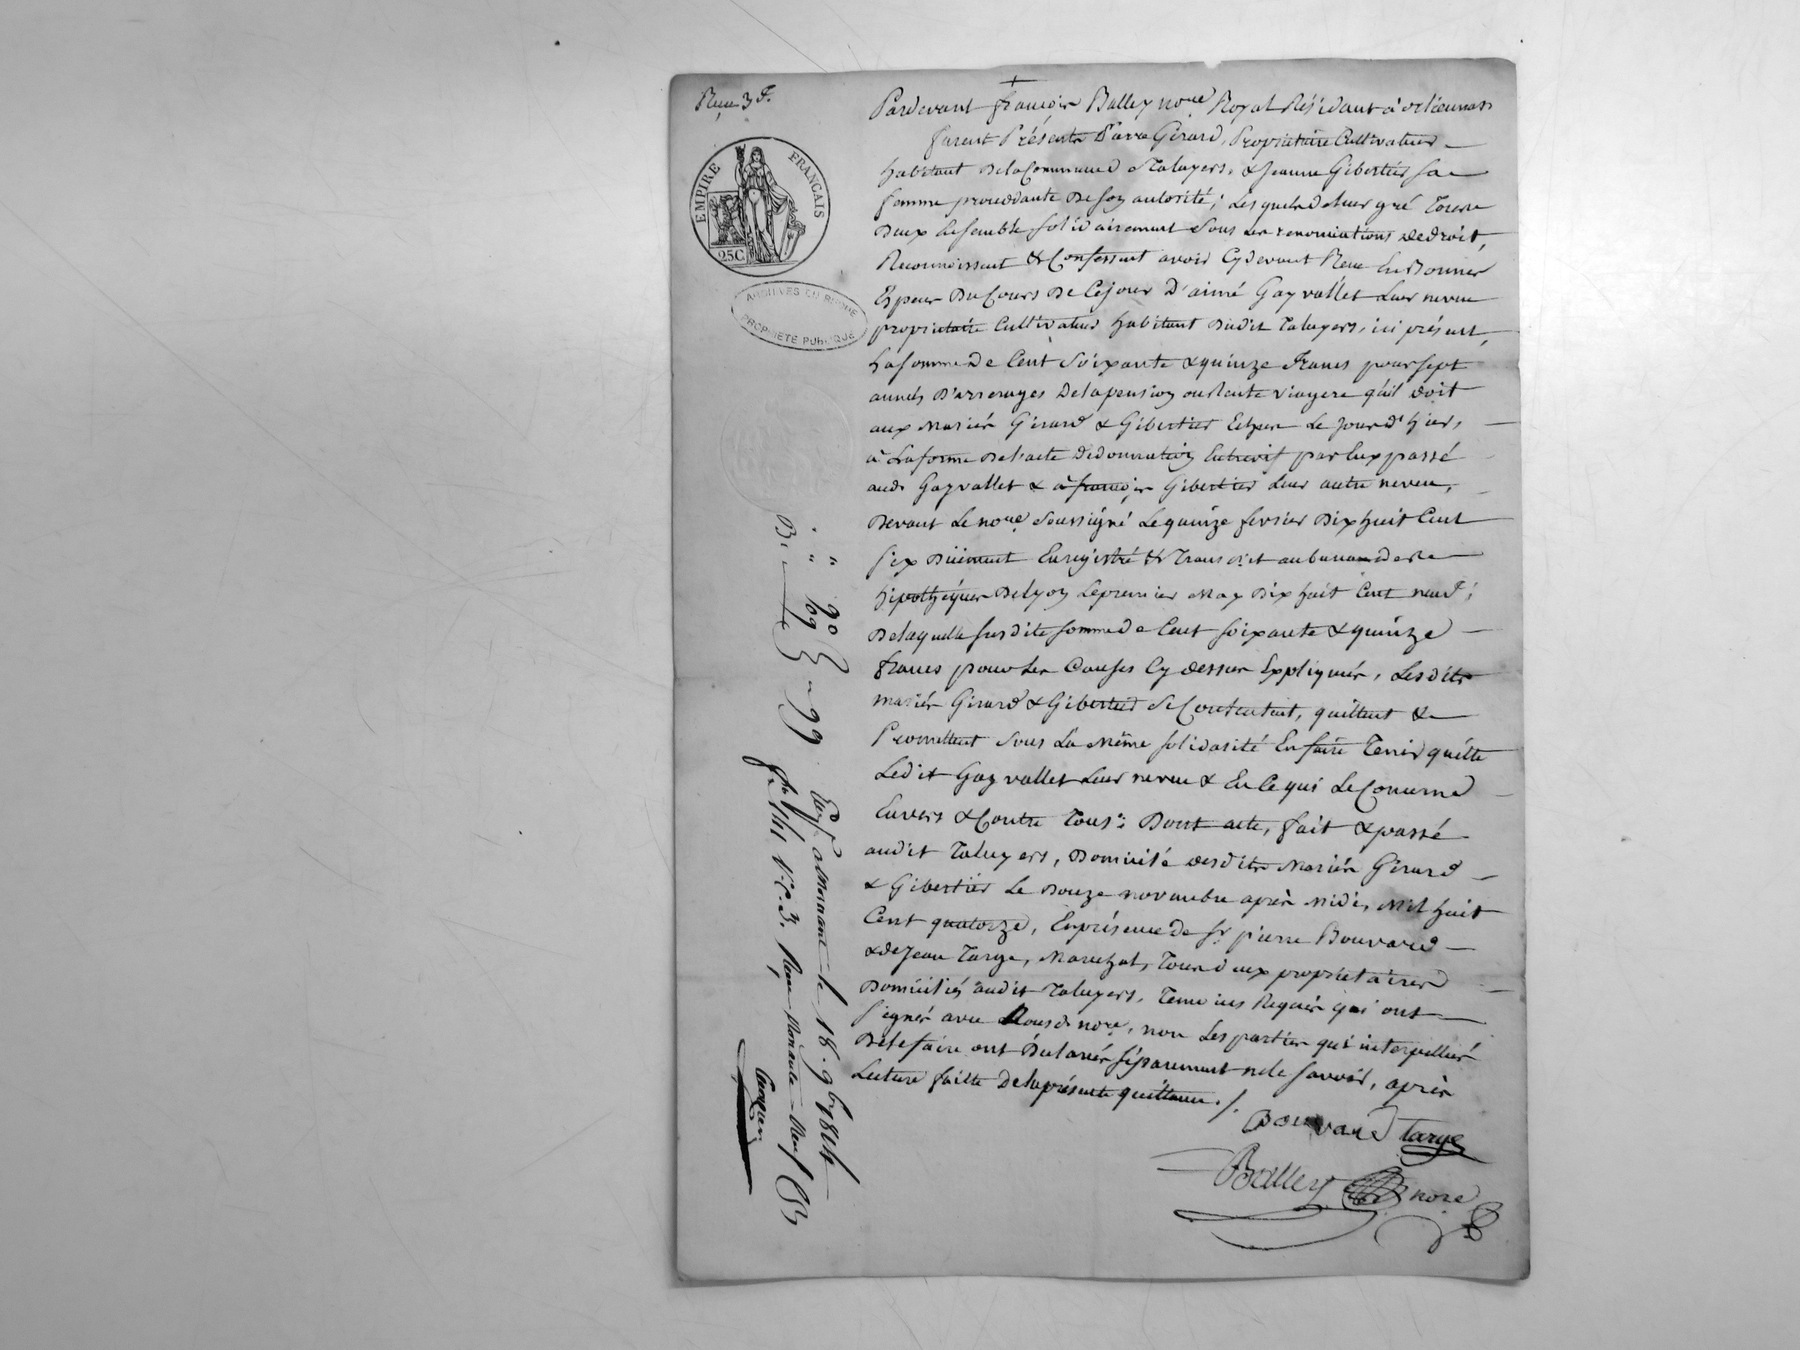 Reçu 3 f.
EMPIRE FRANÇAIS
25C
ARCHIVES DU RHONE
PROPRIETE PUBLIQUE
Pardevant françois Balley no.re Royal Résidant à orliennas
furent Présents Pierre Girard, Propriétaire Cultivateur
habitant de la Commune de Taluyers, & Jeanne Gibertier sa
femme procedante de son autorité; Lesquels de leur gré Tous
deux Ensemble solidairement sous les renonciations de droit,
Reconnoissent & Confessent avoir Cydevant Reçu En Donner
Espece du Cours de Cejour d'aimé Gayvallet Leur neveu
propriétaire Cultivateur habitant dudit Taluyers, ici présent,
La somme de Cent Soixante & quinze francs pour sept
années d'arrerages de la pension ou Rente viagere qu'il doit
aux Mariés Girard & Gibertier Echue Le jour d'hier,
à La forme de l'acte de donnation Entrevif par Eux passé
aud. Gayvallet & à françois Gibertier Leur autre neveu,
devant Le no.re soussigné Le quinze fevrier dix huit Cent
six duëment Enregistré & Transcrit au bureau des
hipothéques de Lyon Le premier May dix huit Cent neuf;
de laquelle susdite somme de Cent soixante & quinze
francs pour Les Causes Cy dessus Expliquées, Lesdits
mariés Girard & Gibertier se Contentent, quittent &
Promettent sous La même solidarité En faire Tenir quitte
Ledit Gayvallet Leur neveu & En Ce qui Le Concerne
Envers & Contre Tous: Dont acte, fait & passé
audit Taluyers, domicile desdits Mariés Girard
& Gibertier Le douze novembre après midi, Mil huit
Cent quatorze, En présence de Sr. pierre Bouvard
& de Jean Targe, Marechal, Tous deux propriétaires
domiciliés audit Taluyers, Temoins Requis qui ont
signés avec Nousd. no.re, non Les parties qui interpellées
de le faire ont déclarés séparement ne le savoir, après
Lecture faitte de la présente quittance ./.
Bouvard Targe
Balley no.re
Enr.é a Mornant le 18. 9bre 1814
f.o 141 V.o C. 3. Reçu